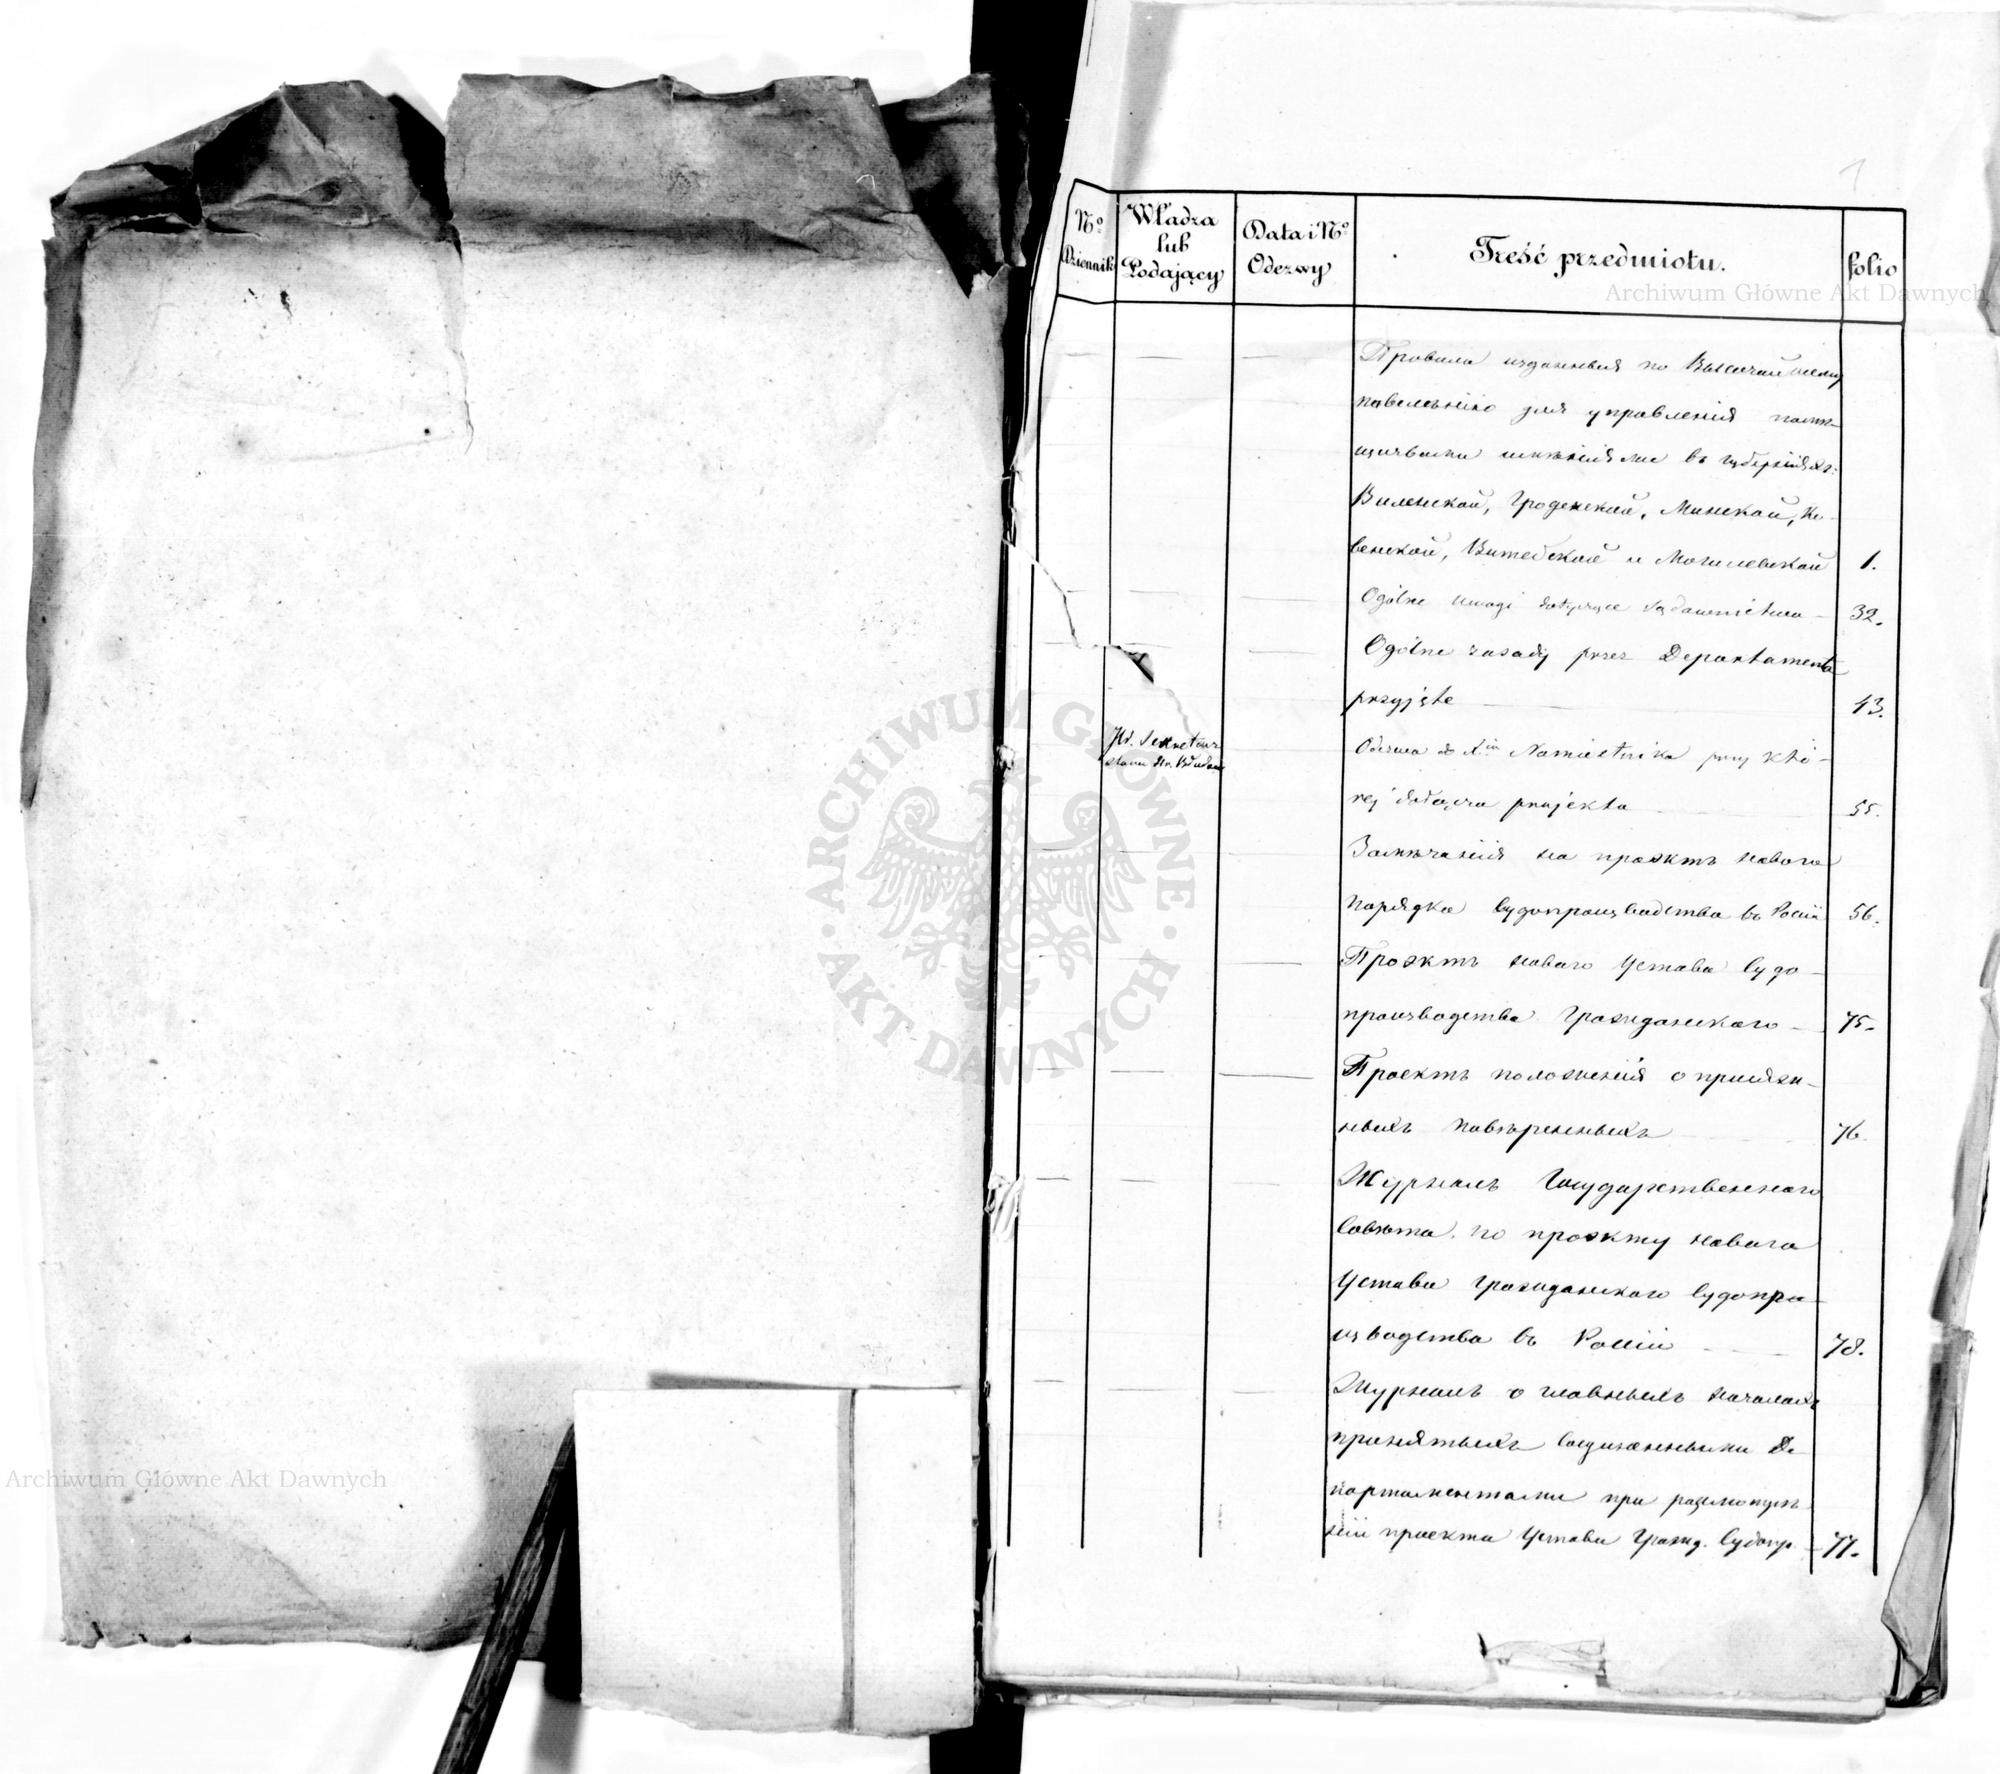 1
No Dziennik
Władza lub Podający
Data i No Odezwy
Treść przedmiotu.
folio
Archiwum Główne Akt Dawnych
Правила изданныя по Высочайшему
повелѣнію для управленія помѣ-
щичьими имѣніями въ губерніяхъ:
Виленской, Гроденской, Минской, Ко-
венской, Витебской и Могилевской 1.
Ogólne uwagi dotyczące sądownictwa 32.
Ogólne zasady przez Departamenta
przyjęte 43.
Sekretarz
stanu
Odezwa do Xcia Namiestnika przy któ-
rej dołącza projekta 55.
Замѣчанія на проэктъ новаго
порядка судопроизводства въ Росіи 56.
Проэктъ новаго Устава судо-
производства Гражданскаго 75.
Проектъ положенія о присяж-
ныхъ повѣренныхъ 76.
Журналъ Государственнаго
Совѣта по проэкту новаго
Устава Гражданскаго судопро-
изводства въ Росіи 78.
Журналъ о главныхъ началахъ
принятыхъ соединенными Де-
партаментами при разсмотрѣ-
ніи проекта Устава Гражд. Судопр. 77.
ARCHIWUM GŁÓWNE · AKT DAWNYCH ·
Archiwum Główne Akt Dawnych